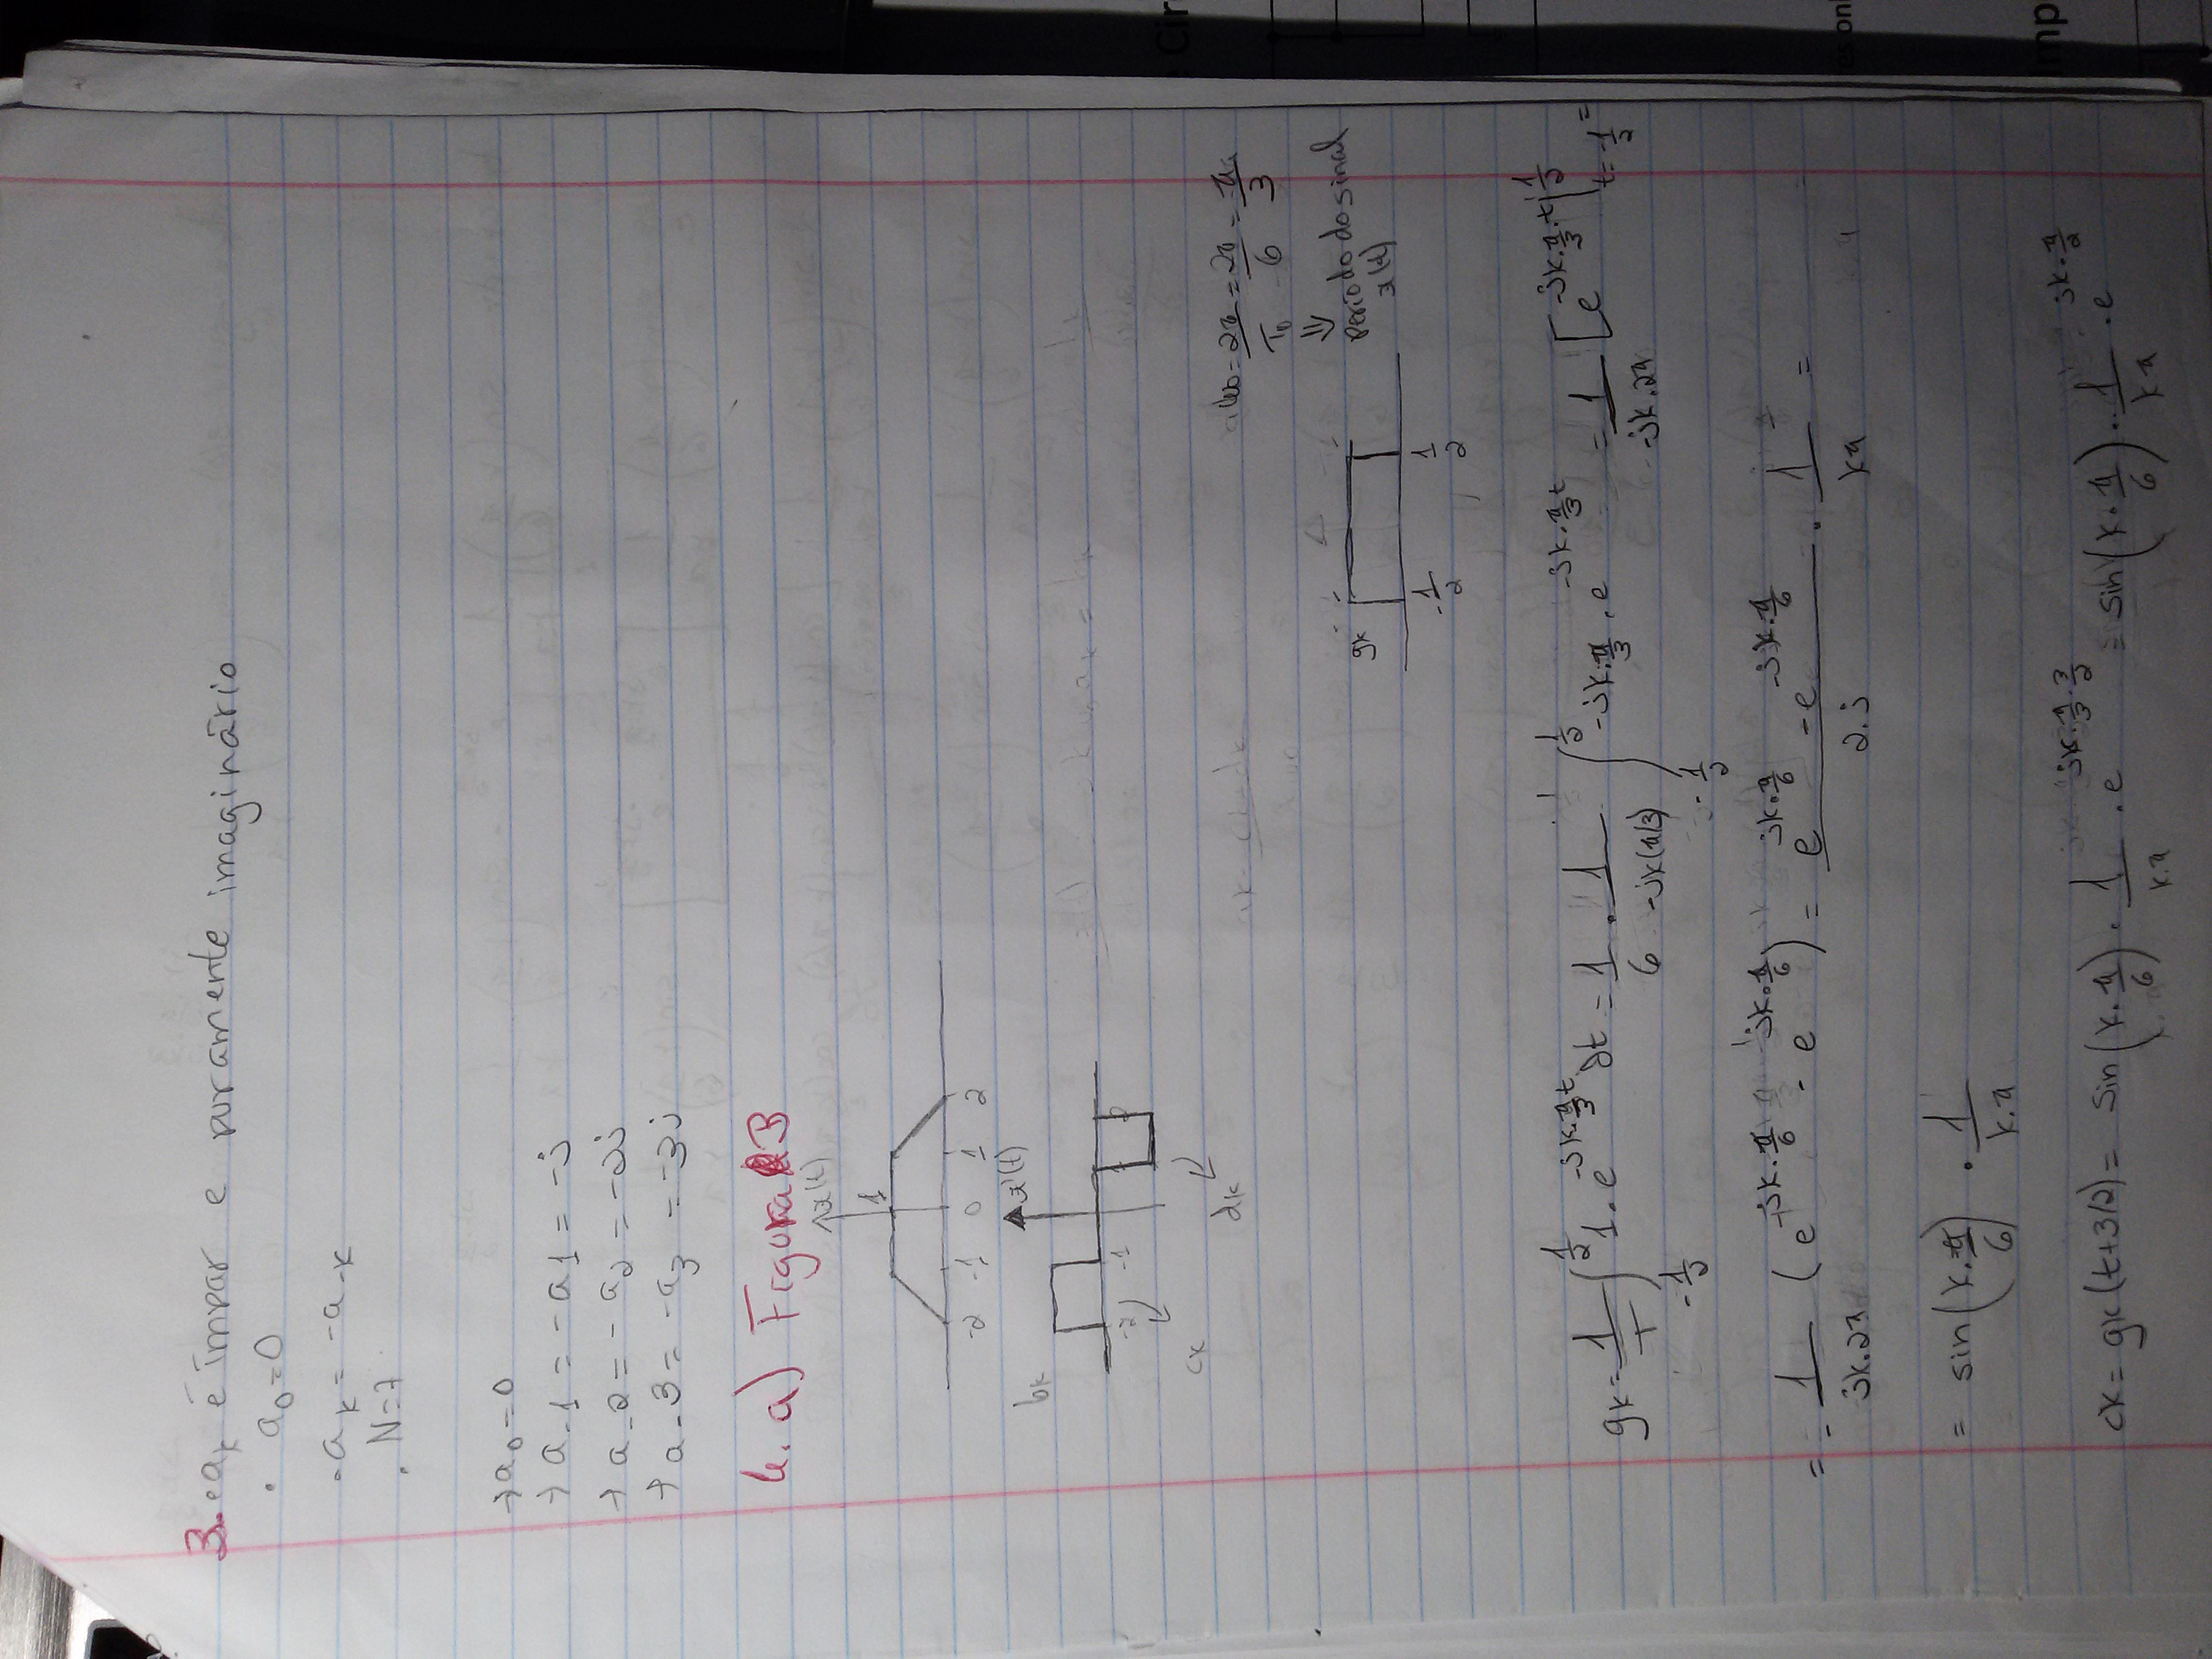 3. • aₖ é ímpar e puramente imaginário
• a₀ = 0
• aₖ = -a₋ₖ
• N=7
→ a₀ = 0
→ a₋₁ = -a₁ = -j
→ a₋₂ = -a₂ = -2j
→ a₋₃ = -a₃ = -3j
4. a) Figura B
x(t)
1
-2 -1 0 1 2
bk x'(t)
-2 -1 1 2
ck
dk
ω₀ = 2π/T₀ = 2π/6 = π/3
⇓
Período do sinal
x(t)
gk
-1/2 1/2
gk = 1/T ∫_{-1/2}^{1/2} 1·e^{-jk·π/3 t} dt = 1/6 · 1/(-jk(π/3)) ∫_{-1/2}^{1/2} -jk·π/3 · e^{-jk·π/3 t} = 1/(-jk·2π) [e^{-jk·π/3·t}|_{t=-1/2}^{1/2} =
= - 1/(jk·2π) (e^{-jk·π/6} - e^{jk·π/6}) = (e^{jk·π/6} - e^{-jk·π/6})/(2·j) · 1/(kπ) =
= sin(k·π/6) · 1/(k·π)
ck = gk(t+3/2) = sin(k·π/6) · 1/(k·π) · e^{jk·π/3·3/2} = sin(k·π/6) · 1/(kπ) · e^{jk·π/2}